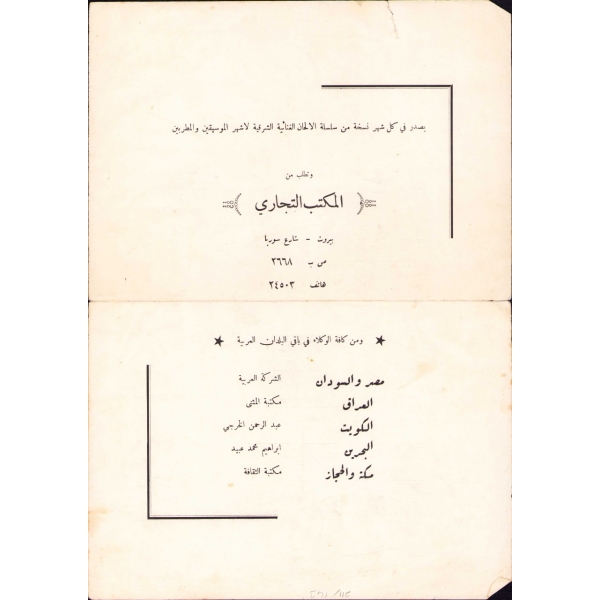 يصدر في كل شهر نسخة من سلسلة الالحان الغنائية الشرقية لاشهر الموسيقيين والمطربين
وتطلب من
المكتب التجاري
بيروت - شارع سوريا
ص ب ٢٦٦٨
هاتف ٢٤٥٠٣
ومن كافة الوكلاء في باقي البلدان العربية
مصر والسودان الشركة العربية
العراق مكتبة المثنى
الكويت عبد الرحمن الخرجي
البحرين ابراهيم محمد عبيد
مكة والحجاز مكتبة الثقافة